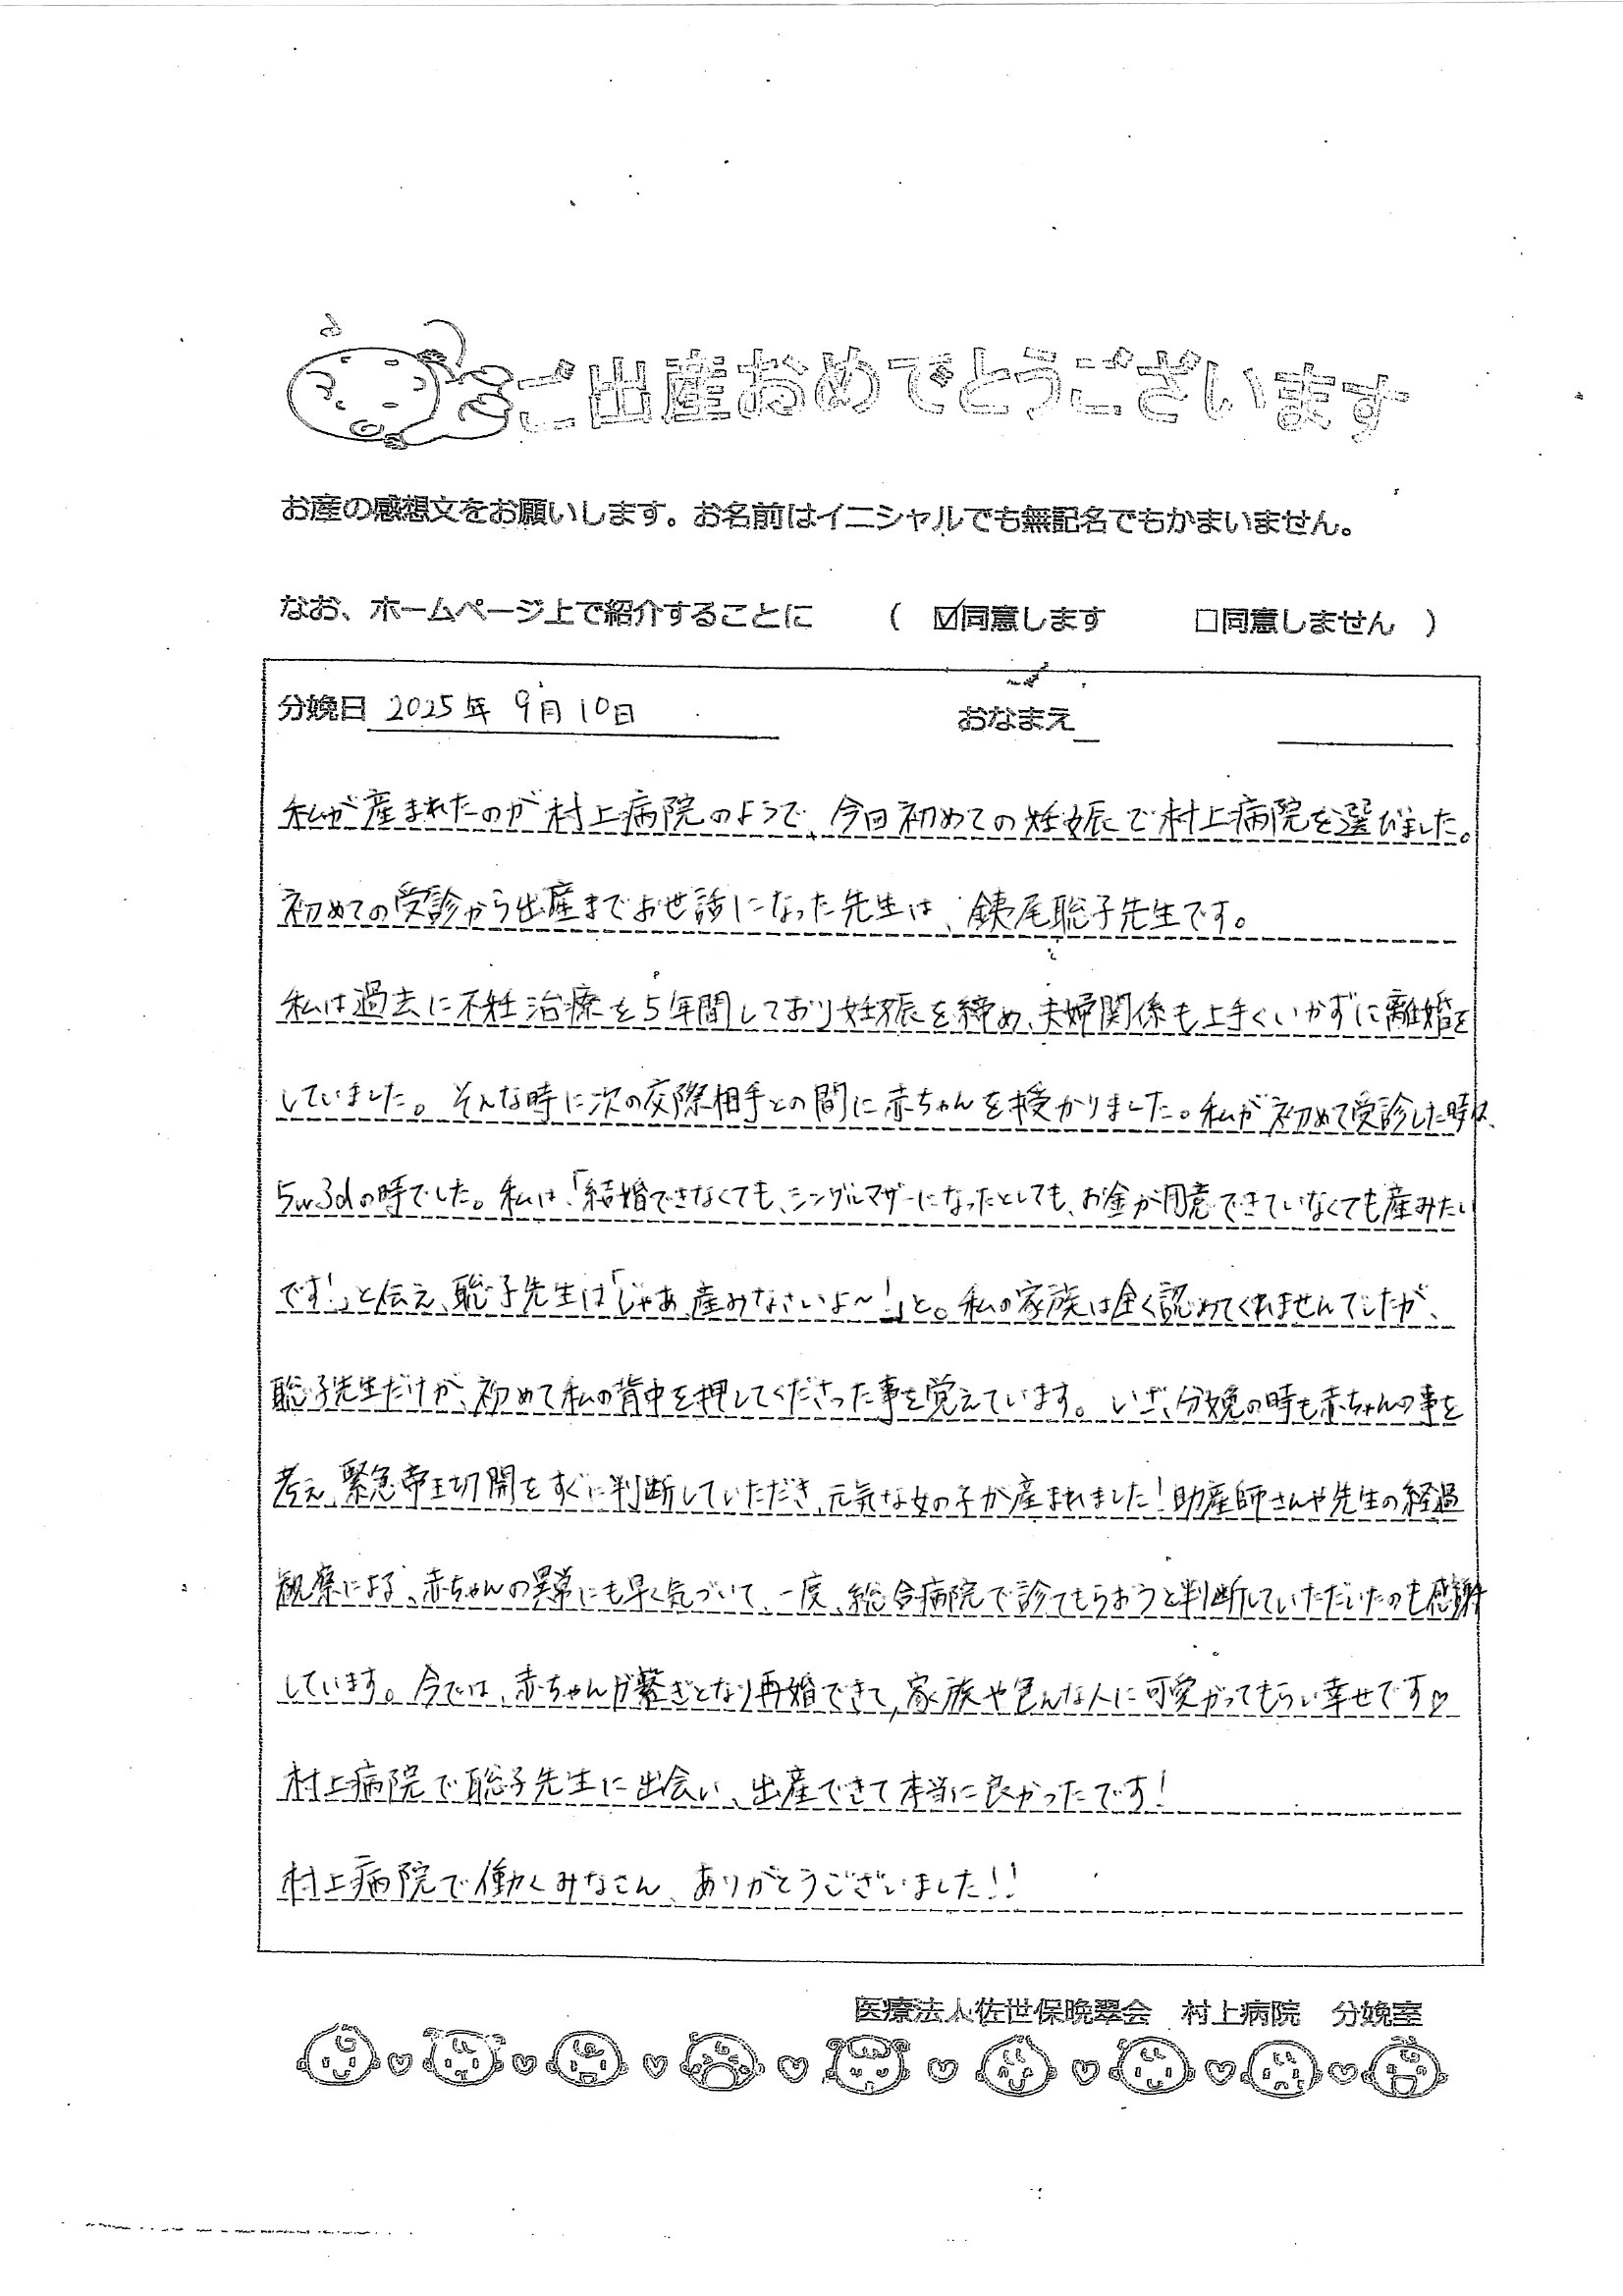 ご出産おめでとうございます
お産の感想文をお願いします。お名前はイニシャルでも無記名でもかまいません。
なお、ホームページ上で紹介することに （ ☑同意します □同意しません ）
分娩日 2025年 9月10日 おなまえ
私が産まれたのが村上病院のようで、今回初めての妊娠で村上病院を選びました。
初めての受診から出産までお世話になった先生は、銕尾聡子先生です。
私は過去に不妊治療を5年間しており妊娠を締め、夫婦関係も上手くいかずに離婚を
していました。そんな時に次の交際相手との間に赤ちゃんを授かりました。私が初めて受診した時は、
5w3dの時でした。私は、「結婚できなくても、シングルマザーになったとしても、お金が用意できていなくても産みたい
です!」と伝え、聡子先生は「じゃあ、産みなさいよ〜!」と。私の家族は全く認めてくれませんでしたが、
聡子先生だけが、初めて私の背中を押してくださった事を覚えています。いざ、分娩の時も赤ちゃんの事を
考え、緊急帝王切開をすぐに判断していただき、元気な女の子が産まれました!助産師さんや先生の経過
観察による、赤ちゃんの異常にも早く気づいて、一度、総合病院で診てもらおうと判断していただいたのも感謝
しています。今では、赤ちゃんが繋ぎとなり再婚できて、家族や色んな人に可愛がってもらい幸せです♡
村上病院で聡子先生に出会い、出産できて本当に良かったです!
村上病院で働くみなさん、ありがとうございました!!
医療法人佐世保晩翠会 村上病院 分娩室